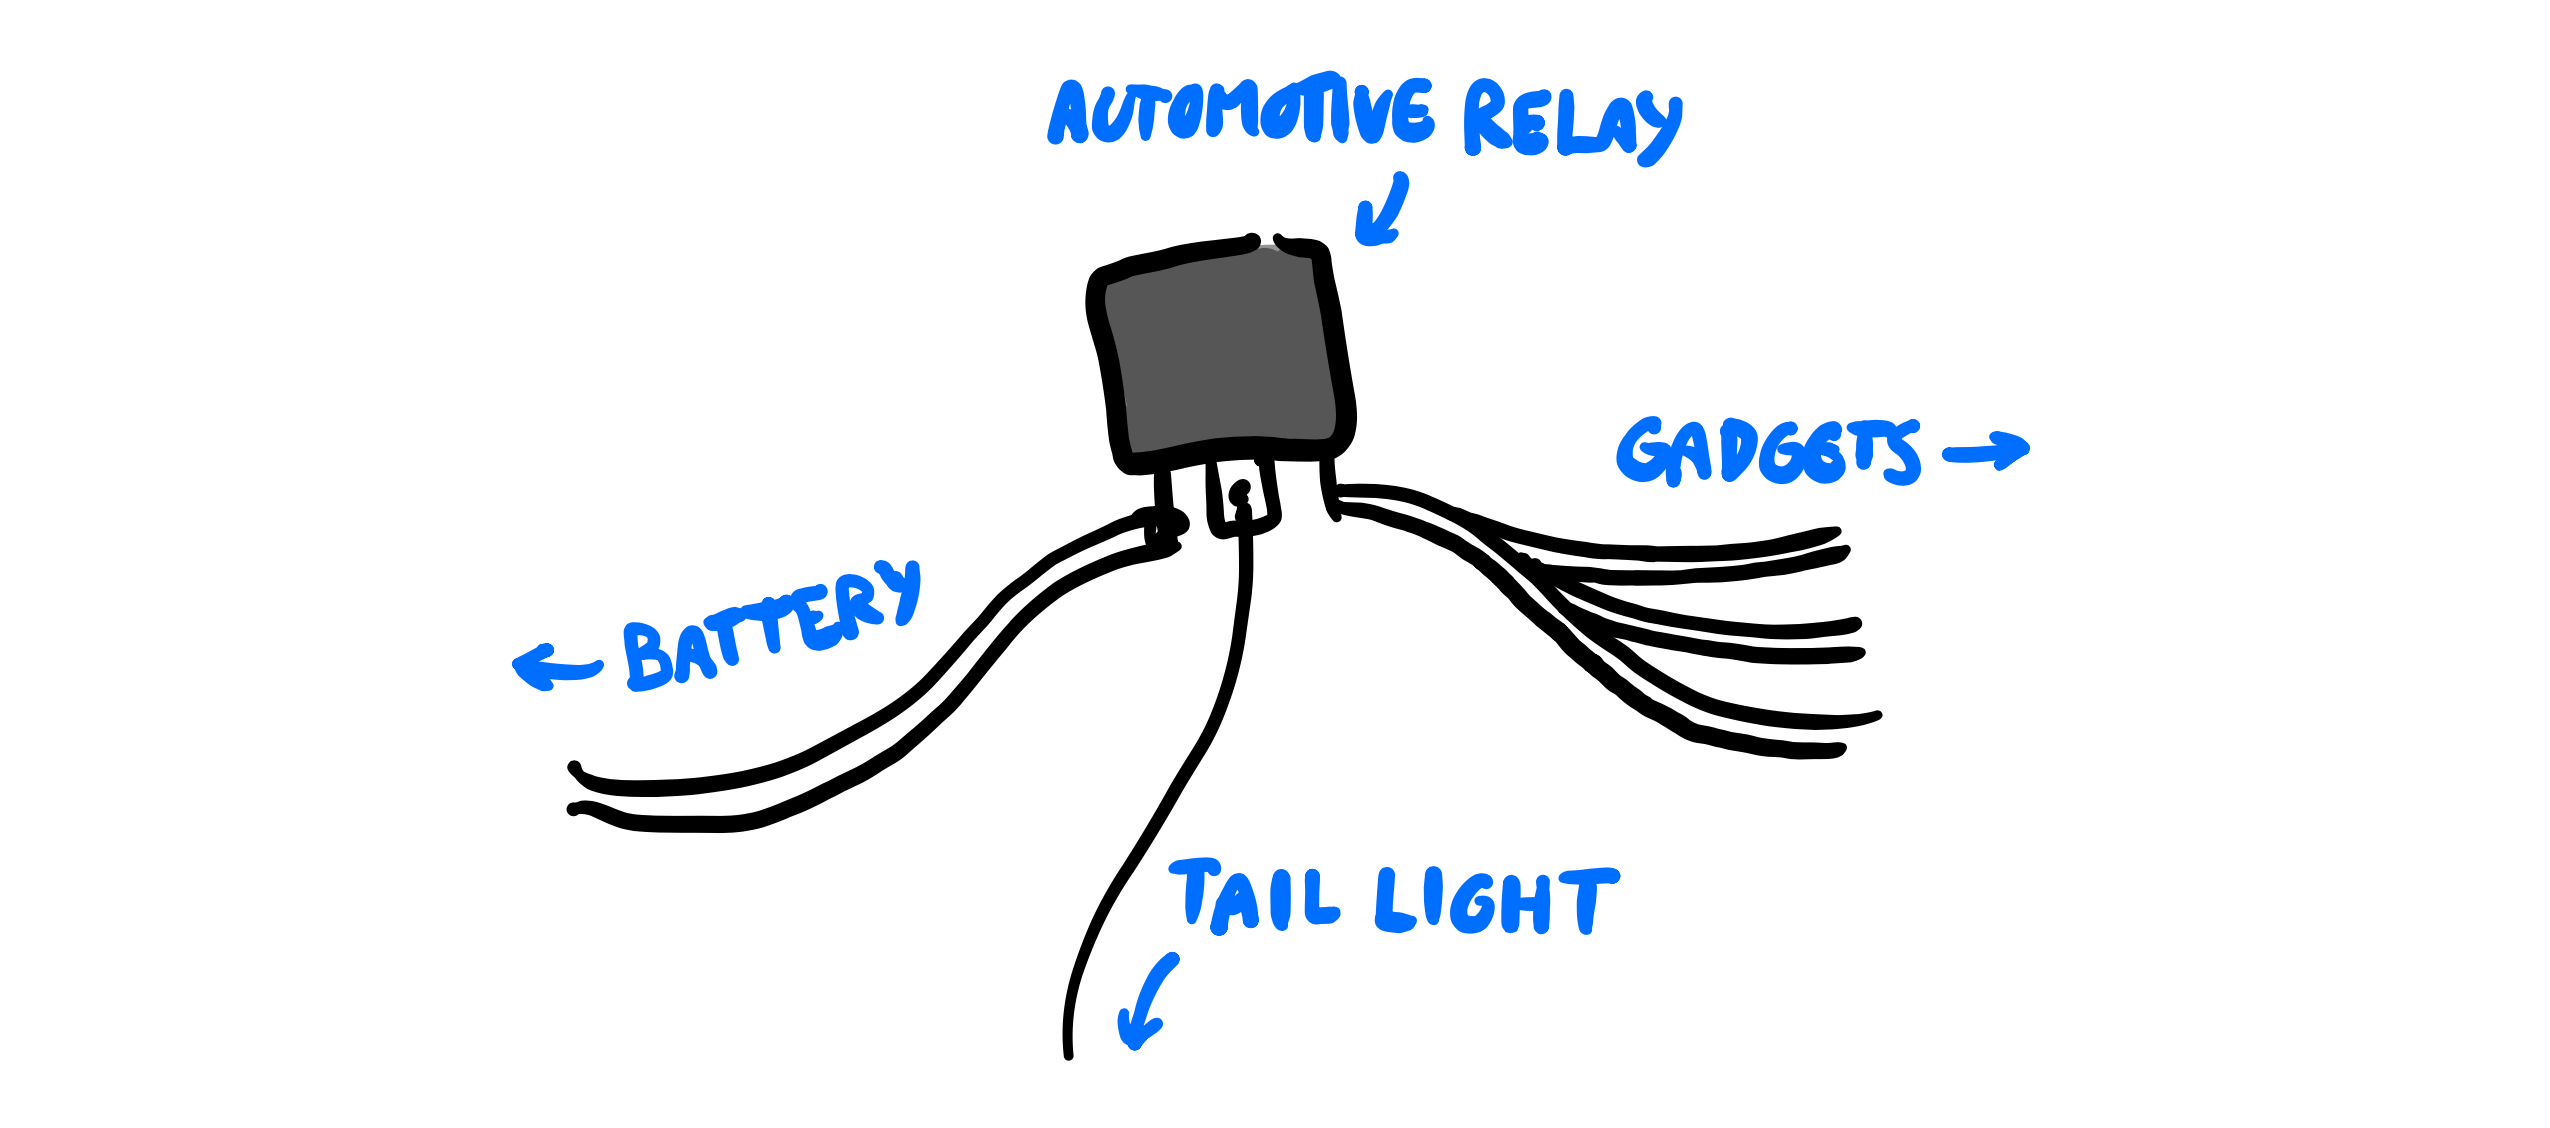 AUTOMOTIVE RELAY
GADGETS
BATTERY
TAIL LIGHT